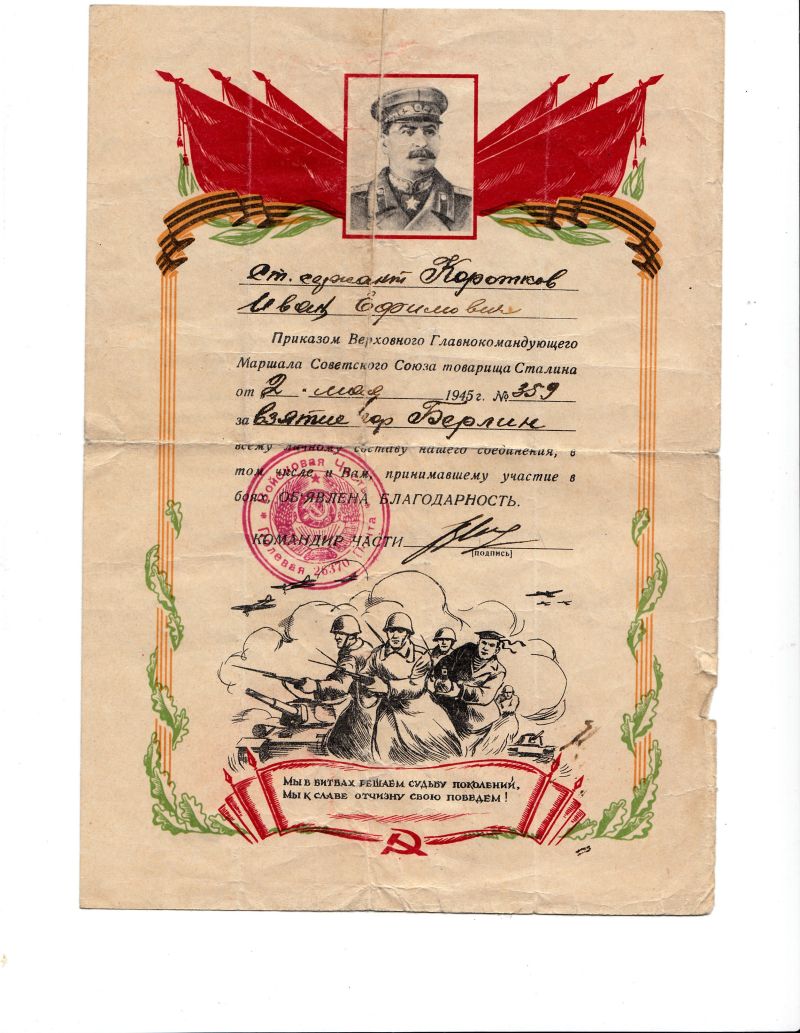 Ст. сержант Коротков
Иван Ефимович
Приказом Верховного Главнокомандующего
Маршала Советского Союза товарища Сталина
от 2 мая 1945 г. № 359
за взятие гор Берлин
всему личному составу нашего соединения, в
том числе и Вам, принимавшему участие в
боях ОБ'ЯВЛЕНА БЛАГОДАРНОСТЬ.
КОМАНДИР ЧАСТИ
[подпись]
Войсковая Часть
Полевая 26370 Почта
Мы в битвах решаем судьбу поколений,
Мы к славе отчизну свою поведем!